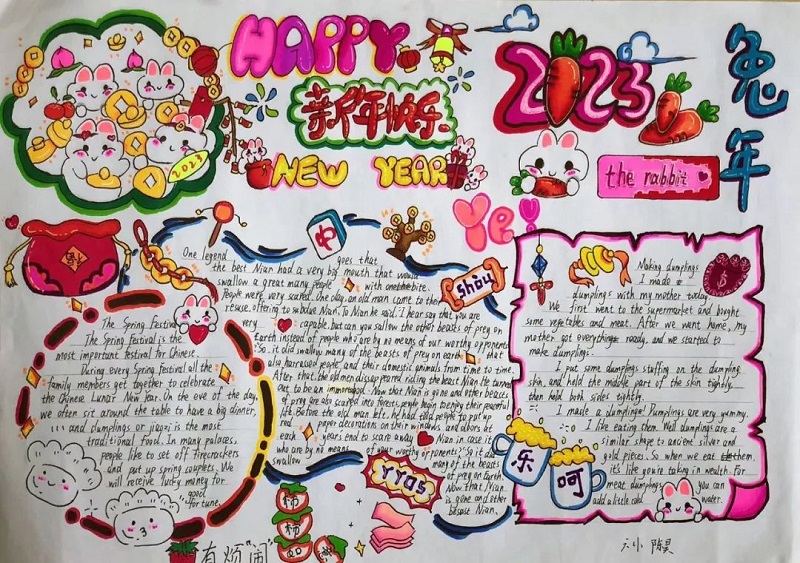 HAPPY
新年快乐
NEW YEAR
2023
2023
兔年
the rabbit
Ye!
福
中
shou
$
The Spring Festival
The Spring Festival is the
most important festival for Chinese.
During every Spring Festival all the
family members get together to celebrate
the Chinese Lunar New Year. On the eve of the day,
we often sit around the table to have a big dinner,
and dumplings or jiaozi is the most
traditional food. In many palaces,
people like to set off firecrackers
and put up spring couplets. We
will receive lucky money for
good
for tune.
One legend goes that
the best Nian had a very big mouth that would
swallow a great many people with one bite.
People were very scared. One day, an old man came to their
rescue, offering to subdue Nian. To Nian he said, "I hear say that you are
very capable, but can you swallow the other beasts of prey on
Earth instead of people who are by no means of our worthy opponents?"
So, it did swallow many of the beasts of prey on earth that
also harrassed people and their domestic animals from time to time.
After that, the old men disappeared riding the beast Nian. He turned
out to be an immortal. Now that Nian is gone and other beasts
of prey are also scared into forests, people begin to enjoy their peaceful
life. Before the old man left, he had told people to put up
red paper decorations on their windows and doors at
each year's end to scare away Nian in case it
who are by no means of our worthy opponents?" So, it did
swallow many of the beasts
of prey on Earth.
Now that Nian
is gone and other
beasst Nian.
YYDS
Making dumplings
I made
dumplings with my mother today.
We first went to the supermarket and bought
some vegetables and meat. After we went home, my
mother got everything ready, and we started to
make dumplings.
I put some dumplings stuffing on the dumpling
skin, and held the middle part of the skin tightly,
then held both sides tightly.
I made a dumplings! Dumplings are very yummy.
I like eating them. Well dumplings are a
similar shape to ancient silver and
gold pieces. So when we eat them,
it's like you're taking in wealth. For
meat dumplings, you can
add a little cold water.
乐
呵
柿
柿
如
有烦"闹"
六小 陈昊